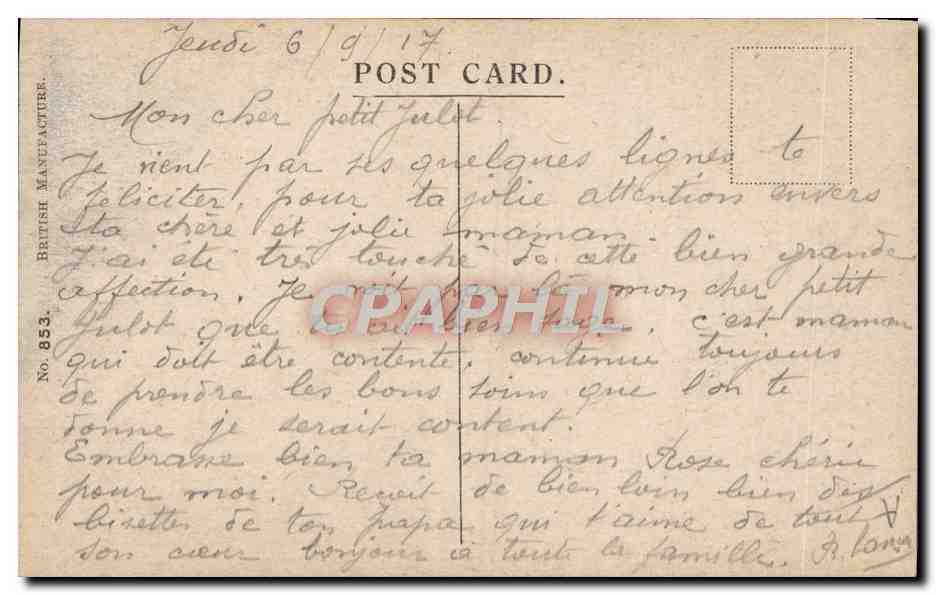 Jeudi 6/9/17
POST CARD.
No. 853. BRITISH MANUFACTURE.
Mon cher petit Julot
Je vient par ses quelques lignes te
feliciter, pour ta jolie attention envers
ta chère et jolie maman.
J'ai été très touché de cette bien grande
affection. Je voit par là mon cher petit
Julot que tu est bien sage. c'est maman
qui doit être contente. continue toujours
de prendre les bons soins que l'on te
donne je serait content.
Embrasse bien ta maman Rose chérie
pour moi. Reçoit de bien loin bien des
bisettes de ton papa qui t'aime de tout
son cœur bonjour à toute la famille. R.
CPAPHIL